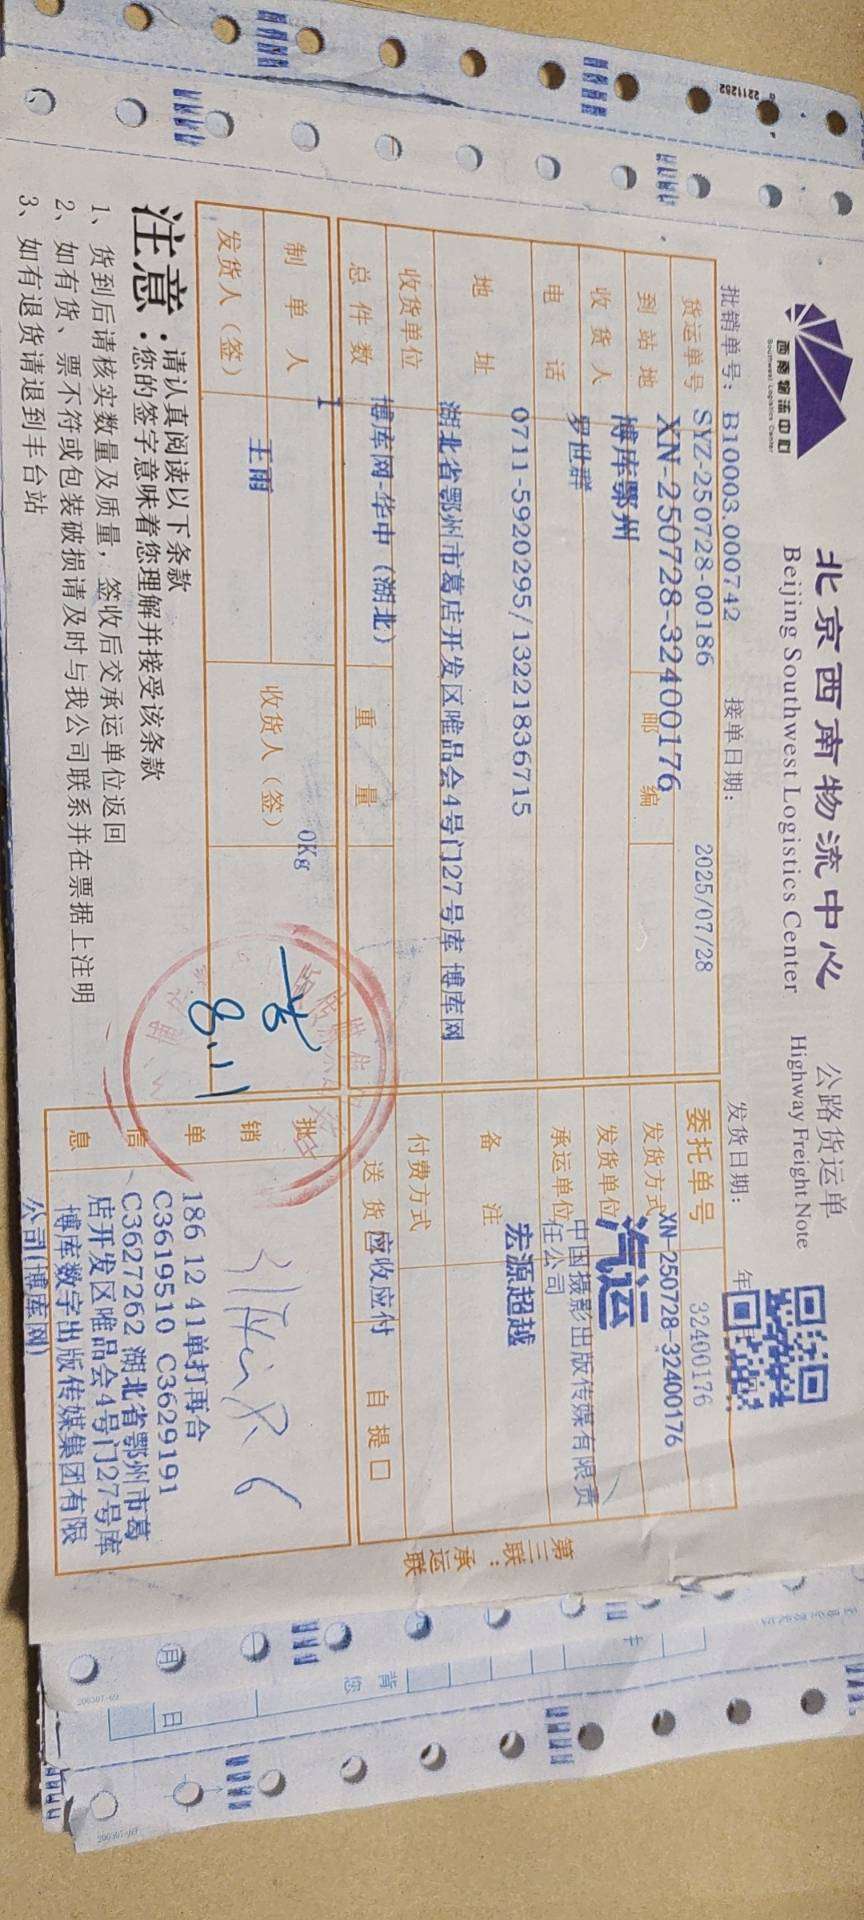 西南物流中心
Southwest Logistics Center
北京西南物流中心 公路货运单
Beijing Southwest Logistics Center Highway Freight Note
批销单号: B10003.000742 接单日期: 2025/07/28 发货日期: 年
货运单号 SYZ-250728-00186
XN-250728-32400176
委托单号 32400176
XN-250728-32400176
到站地 博库鄂州 邮编
发货方式 汽运
收货人 罗世群
发货单位 中国摄影出版传媒有限责
任公司
电话 0711-5920295/13221836715
承运单位 宏源超越
地址 湖北省鄂州市葛店开发区唯品会4号门27号库 博库网
备注
收货单位 博库网-华中(湖北)
付费方式 应收应付
总件数 1 重量 0Kg
送货 自提口
制单人 王雨 收货人(签)
发货人(签)
8.11
批销单信息
186 12 41单打再合
C3619510 C3629191
C3627262 湖北省鄂州市葛
店开发区唯品会4号门27号库
博库数字出版传媒集团有限
公司(博库网)
第三联:承运联
注意:请认真阅读以下条款
您的签字意味着您理解并接受该条款
1、货到后请核实数量及质量,签收后交承运单位返回
2、如有货、票不符或包装破损请及时与我公司联系并在票据上注明
3、如有退货请退到丰台站
2211282
月
日